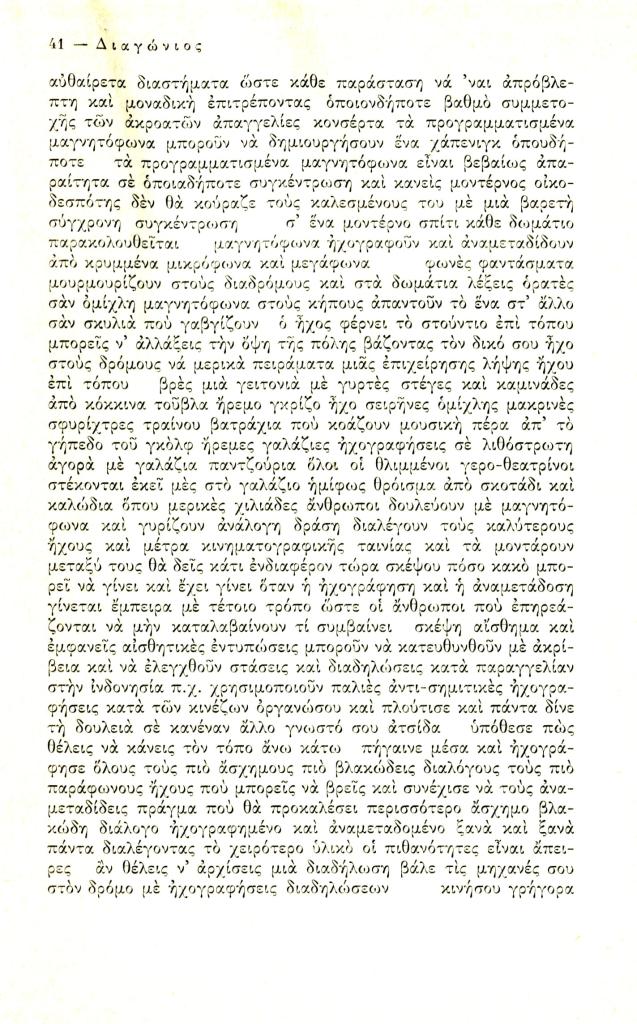 41 — Διαγώνιος
αὐθαίρετα διαστήματα ὥστε κάθε παράσταση νά 'ναι ἀπρόβλε-
πτη καὶ μοναδικὴ ἐπιτρέποντας ὁποιονδήποτε βαθμὸ συμμετο-
χῆς τῶν ἀκροατῶν ἀπαγγελίες κονσέρτα τὰ προγραμματισμένα
μαγνητόφωνα μποροῦν νὰ δημιουργήσουν ἕνα χάπενιγκ ὁπουδή-
ποτε τὰ προγραμματισμένα μαγνητόφωνα εἶναι βεβαίως ἀπα-
ραίτητα σὲ ὁποιαδήποτε συγκέντρωση καὶ κανεὶς μοντέρνος οἰκο-
δεσπότης δὲν θὰ κούραζε τοὺς καλεσμένους του μὲ μιὰ βαρετὴ
σύγχρονη συγκέντρωση σ' ἕνα μοντέρνο σπίτι κάθε δωμάτιο
παρακολουθεῖται μαγνητόφωνα ἠχογραφοῦν καὶ ἀναμεταδίδουν
ἀπὸ κρυμμένα μικρόφωνα καὶ μεγάφωνα φωνὲς φαντάσματα
μουρμουρίζουν στοὺς διαδρόμους καὶ στὰ δωμάτια λέξεις ὁρατὲς
σὰν ὁμίχλη μαγνητόφωνα στοὺς κήπους ἀπαντοῦν τὸ ἕνα στ' ἄλλο
σὰν σκυλιὰ ποὺ γαβγίζουν ὁ ἦχος φέρνει τὸ στούντιο ἐπὶ τόπου
μπορεῖς ν' ἀλλάξεις τὴν ὄψη τῆς πόλης βάζοντας τὸν δικό σου ἦχο
στοὺς δρόμους νά μερικὰ πειράματα μιᾶς ἐπιχείρησης λήψης ἤχου
ἐπὶ τόπου βρὲς μιὰ γειτονιὰ μὲ γυρτὲς στέγες καὶ καμινάδες
ἀπὸ κόκκινα τοῦβλα ἤρεμο γκρίζο ἦχο σειρῆνες ὁμίχλης μακρινὲς
σφυρίχτρες τραίνου βατράχια ποὺ κοάζουν μουσικὴ πέρα ἀπ' τὸ
γήπεδο τοῦ γκὸλφ ἤρεμες γαλάζιες ἠχογραφήσεις σὲ λιθόστρωτη
ἀγορὰ μὲ γαλάζια παντζούρια ὅλοι οἱ θλιμμένοι γερο-θεατρίνοι
στέκονται ἐκεῖ μὲς στὸ γαλάζιο ἡμίφως θρόισμα ἀπὸ σκοτάδι καὶ
καλώδια ὅπου μερικὲς χιλιάδες ἄνθρωποι δουλεύουν μὲ μαγνητό-
φωνα καὶ γυρίζουν ἀνάλογη δράση διαλέγουν τοὺς καλύτερους
ἤχους καὶ μέτρα κινηματογραφικῆς ταινίας καὶ τὰ μοντάρουν
μεταξύ τους θὰ δεῖς κάτι ἐνδιαφέρον τώρα σκέψου πόσο κακὸ μπο-
ρεῖ νὰ γίνει καὶ ἔχει γίνει ὅταν ἡ ἠχογράφηση καὶ ἡ ἀναμετάδοση
γίνεται ἔμπειρα μὲ τέτοιο τρόπο ὥστε οἱ ἄνθρωποι ποὺ ἐπηρεά-
ζονται νὰ μὴν καταλαβαίνουν τί συμβαίνει σκέψη αἴσθημα καὶ
ἐμφανεῖς αἰσθητικὲς ἐντυπώσεις μποροῦν νὰ κατευθυνθοῦν μὲ ἀκρί-
βεια καὶ νὰ ἐλεγχθοῦν στάσεις καὶ διαδηλώσεις κατὰ παραγγελίαν
στὴν ἰνδονησία π.χ. χρησιμοποιοῦν παλιὲς ἀντι-σημιτικὲς ἠχογρα-
φήσεις κατὰ τῶν κινέζων ὀργανώσου καὶ πλούτισε καὶ πάντα δίνε
τὴ δουλειὰ σὲ κανέναν ἄλλο γνωστό σου ἀτσίδα ὑπόθεσε πὼς
θέλεις νὰ κάνεις τὸν τόπο ἄνω κάτω πήγαινε μέσα καὶ ἠχογρά-
φησε ὅλους τοὺς πιὸ ἄσχημους πιὸ βλακώδεις διαλόγους τοὺς πιὸ
παράφωνους ἤχους ποὺ μπορεῖς νὰ βρεῖς καὶ συνέχισε νὰ τοὺς ἀνα-
μεταδίδεις πράγμα ποὺ θὰ προκαλέσει περισσότερο ἄσχημο βλα-
κώδη διάλογο ἠχογραφημένο καὶ ἀναμεταδομένο ξανὰ καὶ ξανὰ
πάντα διαλέγοντας τὸ χειρότερο ὑλικὸ οἱ πιθανότητες εἶναι ἄπει-
ρες ἂν θέλεις ν' ἀρχίσεις μιὰ διαδήλωση βάλε τὶς μηχανές σου
στὸν δρόμο μὲ ἠχογραφήσεις διαδηλώσεων κινήσου γρήγορα